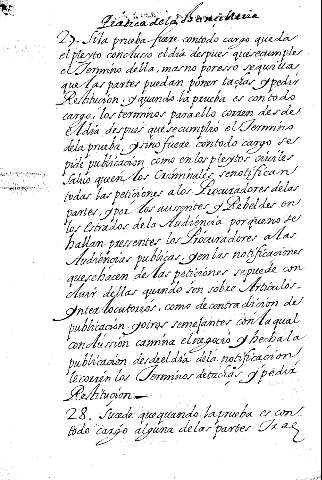 Practica de la Chancilleria
27. Si la prueba fuere con todo cargo queda
el pleyto concluso el dia despues que se cumple
el Termino della, mas no por esso se quita
que las partes puedan poner tachas, y pedir
Restitucion, y quando la prueba es con todo
cargo, los terminos para ello corren desde
el dia despues que se cumplio el Termino
de la prueba, y si no fuere con todo cargo se
pide publicacion como en los pleytos civiles
salvo que en los Criminales, se notifican
todas las peticiones a los Procuradores de las
partes, y por los ausentes y Rebeldes en
los Estrados de la Audiencia porque no se
hallan presentes los Procuradores a las
Audiencias publicas, y en las notificaciones
que se hacen de las peticiones se puede con
cluir dellas quando son sobre Articulos
Ynterlocutorios, como de contradicion de
publicacion, y otros semejantes con la qual
conclussion camina el negocio y hecha la
publicacion desde el dia de la notificacion
le corren los Terminos de tachas, y pedir
Restitucion
28. Sucede que quando la prueba es con
todo cargo alguna de las partes